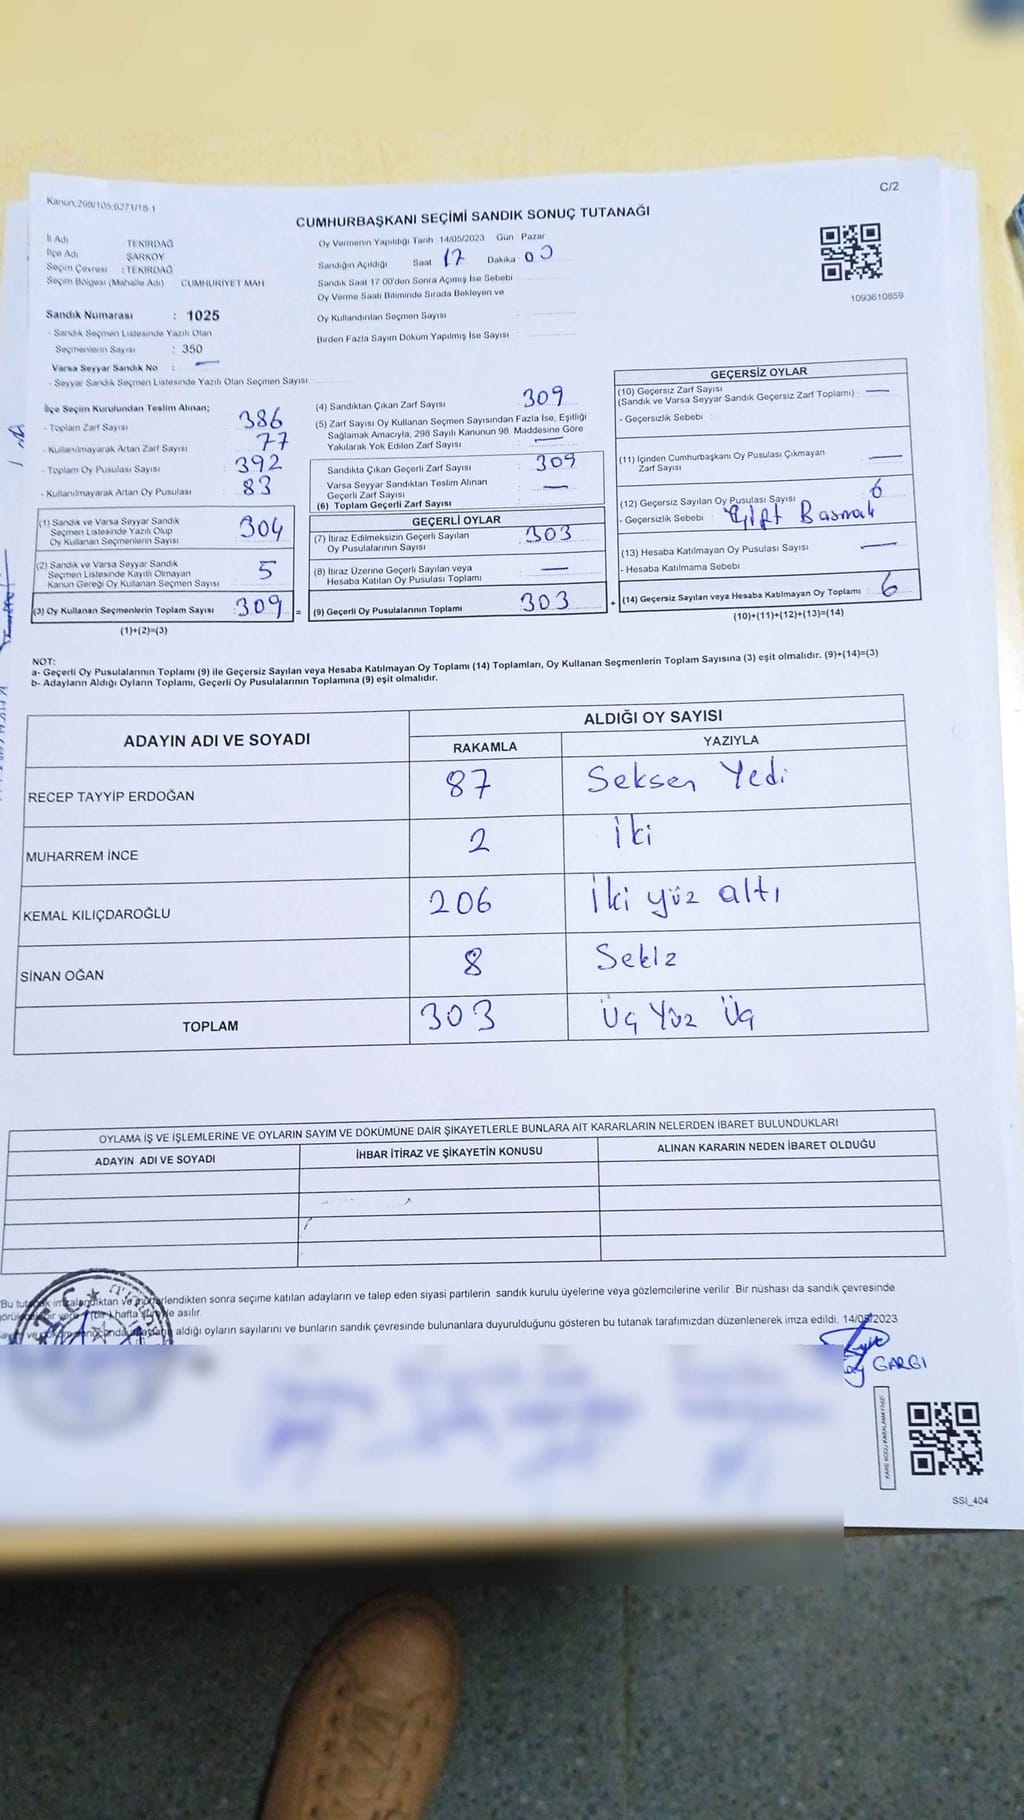 Kanun,298/105,6271/18-1
C/2
CUMHURBAŞKANI SEÇİMİ SANDIK SONUÇ TUTANAĞI
İl Adı TEKİRDAĞ
İlçe Adı ŞARKÖY
Seçim Çevresi : TEKİRDAĞ
Seçim Bölgesi (Mahalle Adı) CUMHURİYET MAH
Oy Vermenin Yapıldığı Tarih :14/05/2023 Gün : Pazar
Sandığın Açıldığı Saat 17 Dakika 00
Sandık Saat 17 00'den Sonra Açımış İse Sebebi
Oy Verme Saati Bitiminde Sırada Bekleyen ve
Oy Kullandırılan Seçmen Sayısı :
Birden Fazla Sayım Döküm Yapılmış İse Sayısı :
1093610859
Sandık Numarası : 1025
- Sandık Seçmen Listesinde Yazılı Olan
Seçmenlerin Sayısı : 350
Varsa Seyyar Sandık No : —
- Seyyar Sandık Seçmen Listesinde Yazılı Olan Seçmen Sayısı
İlçe Seçim Kurulundan Teslim Alınan;
- Toplam Zarf Sayısı : 386
- Kullanılmayarak Artan Zarf Sayısı : 77
- Toplam Oy Pusulası Sayısı : 392
- Kullanılmayarak Artan Oy Pusulası : 83
(1) Sandık ve Varsa Seyyar Sandık
Seçmen Listesinde Yazılı Olup
Oy Kullanan Seçmenlerin Sayısı : 304
(2) Sandık ve Varsa Seyyar Sandık
Seçmen Listesinde Kayıtlı Olmayan
Kanun Gereği Oy Kullanan Seçmen Sayısı : 5
(3) Oy Kullanan Seçmenlerin Toplam Sayısı : 309 =
(1)+(2)=(3)
(4) Sandıktan Çıkan Zarf Sayısı : 309
(5) Zarf Sayısı Oy Kullanan Seçmen Sayısından Fazla İse, Eşitliği
Sağlamak Amacıyla, 298 Sayılı Kanunun 98. Maddesine Göre
Yakılarak Yok Edilen Zarf Sayısı : —
Sandıkta Çıkan Geçerli Zarf Sayısı : 309
Varsa Seyyar Sandıktan Teslim Alınan
Geçerli Zarf Sayısı : —
(6) Toplam Geçerli Zarf Sayısı :
GEÇERLİ OYLAR
(7) İtiraz Edilmeksizin Geçerli Sayılan
Oy Pusulalarının Sayısı : 303
(8) İtiraz Üzerine Geçerli Sayılan veya
Hesaba Katılan Oy Pusulası Toplamı : —
(9) Geçerli Oy Pusulalarının Toplamı : 303 +
GEÇERSİZ OYLAR
(10) Geçersiz Zarf Sayısı
(Sandık ve Varsa Seyyar Sandık Geçersiz Zarf Toplamı) : —
- Geçersizlik Sebebi :
(11) İçinden Cumhurbaşkanı Oy Pusulası Çıkmayan
Zarf Sayısı : —
(12) Geçersiz Sayılan Oy Pusulası Sayısı : 6
- Geçersizlik Sebebi : Çift Basmak
(13) Hesaba Katılmayan Oy Pusulası Sayısı : —
- Hesaba Katılmama Sebebi :
(14) Geçersiz Sayılan veya Hesaba Katılmayan Oy Toplamı : 6
(10)+(11)+(12)+(13)=(14)
NOT:
a- Geçerli Oy Pusulalarının Toplamı (9) ile Geçersiz Sayılan veya Hesaba Katılmayan Oy Toplamı (14) Toplamları, Oy Kullanan Seçmenlerin Toplam Sayısına (3) eşit olmalıdır. (9)+(14)=(3)
b- Adayların Aldığı Oyların Toplamı, Geçerli Oy Pusulalarının Toplamına (9) eşit olmalıdır.
ADAYIN ADI VE SOYADI ALDIĞI OY SAYISI
RAKAMLA YAZIYLA
RECEP TAYYİP ERDOĞAN 87 Seksen Yedi
MUHARREM İNCE 2 İki
KEMAL KILIÇDAROĞLU 206 İki yüz altı
SİNAN OĞAN 8 Sekiz
TOPLAM 303 Üç Yüz Üç
OYLAMA İŞ VE İŞLEMLERİNE VE OYLARIN SAYIM VE DÖKÜMÜNE DAİR ŞİKAYETLERLE BUNLARA AİT KARARLARIN NELERDEN İBARET BULUNDUKLARI
ADAYIN ADI VE SOYADI İHBAR İTİRAZ VE ŞİKAYETİN KONUSU ALINAN KARARIN NEDEN İBARET OLDUĞU
Bu imzalandıktan ve sonra seçime katılan adayların ve talep eden siyasi partilerin sandık kurulu üyelerine veya gözlemcilerine verilir .Bir nüshası da sandık çevresinde
(bir) hafta asılır
aldığı oyların sayılarını ve bunların sandık çevresinde bulunanlara duyurulduğunu gösteren bu tutanak tarafımızdan düzenlenerek imza edildi. 14/05/2023
T.C.
GARGI
KARE KODU KARALAMAYINIZ!
SSİ_404